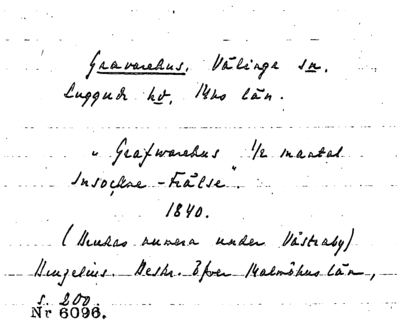 Gravarehus, Välinge sn.
Luggude hd, Mhs län.
"Grafwarehus 1/2 mantal
Insockne-Frälse".
1840.
(Brukas numera under Västraby)
Bexelius. Beskr. öfver Malmöhus län,
s. 200.
Nr 6096.